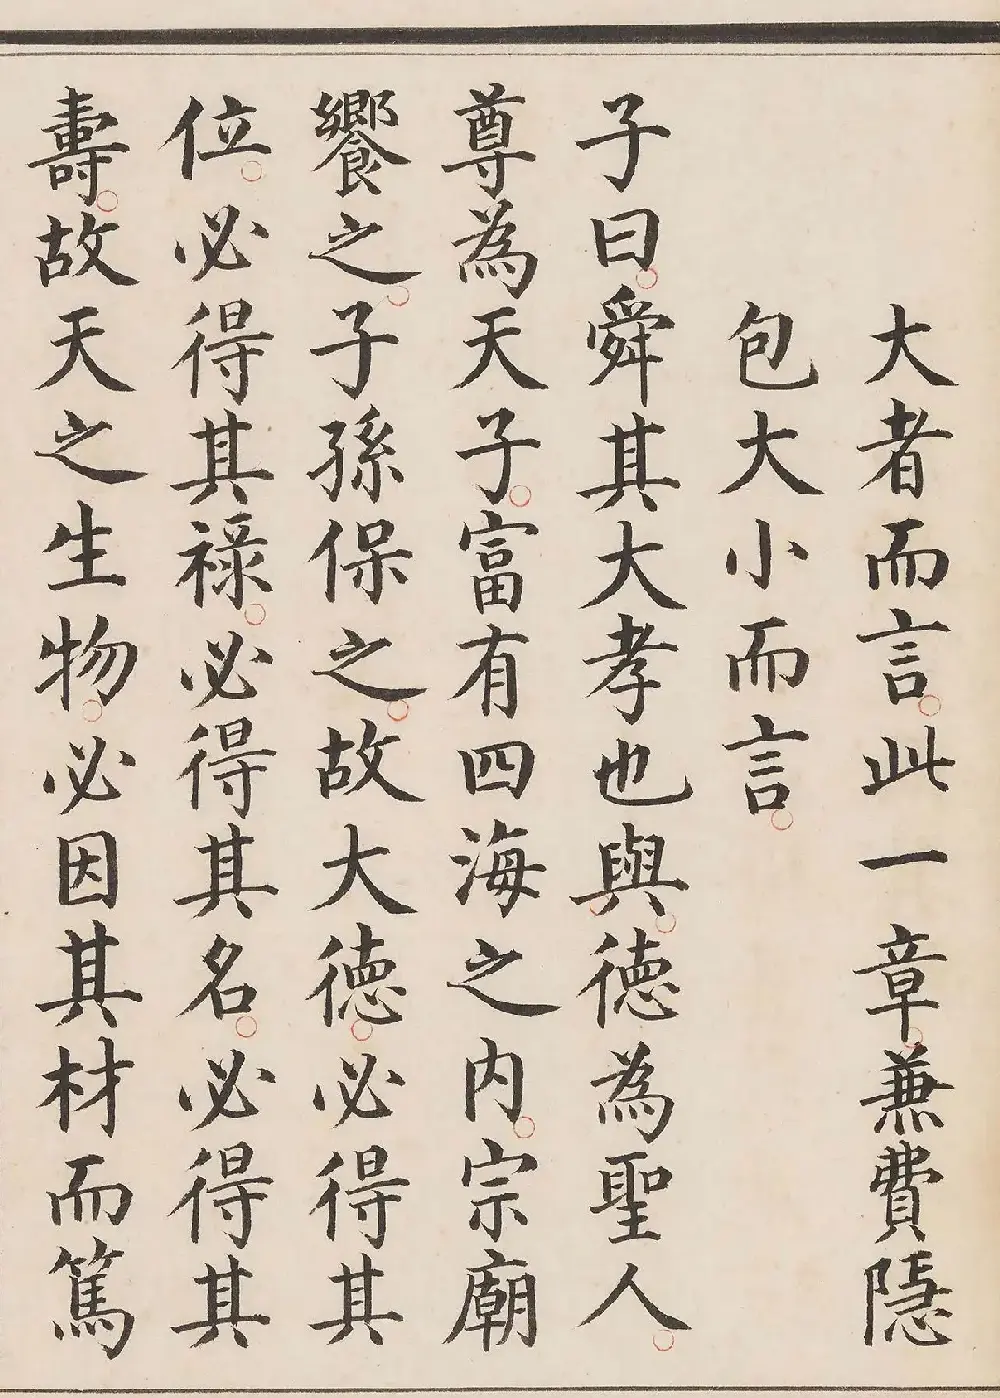 大者而言。此一章。兼費隱
包大小而言。
子曰。舜其大孝也與。德為聖人。
尊為天子。富有四海之內。宗廟
饗之。子孫保之。故大德。必得其
位。必得其祿。必得其名。必得其
壽。故天之生物。必因其材而篤